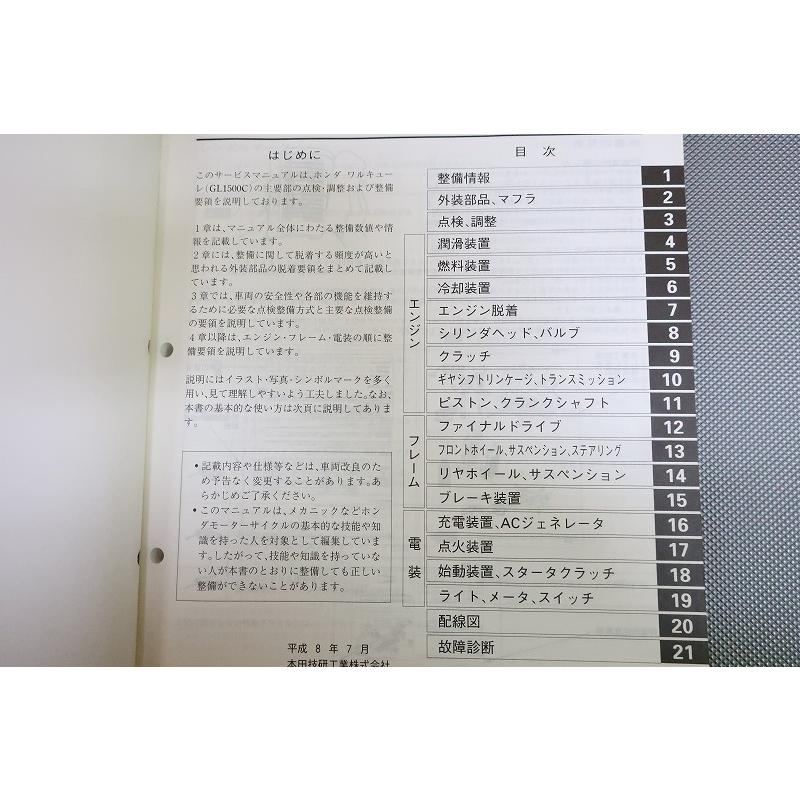 はじめに
このサービスマニュアルは、ホンダ ワルキュー
レ(GL1500C)の主要部の点検・調整および整備
要領を説明しております。
1章は、マニュアル全体にわたる整備数値や情
報を記載しています。
2章には、整備に関して脱着する頻度が高いと
思われる外装部品の脱着要領をまとめて記載し
ています。
3章では、車両の安全性や各部の機能を維持す
るために必要な点検整備方式と主要な点検整備
の要領を説明しています。
4章以降は、エンジン・フレーム・電装の順に整
備要領を説明しています。
説明にはイラスト・写真・シンボルマークを多く
用い、見て理解しやすいよう工夫しました。なお、
本書の基本的な使い方は次頁に説明してありま
す。
• 記載内容や仕様等などは、車両改良のた
め予告なく変更することがあります。あ
らかじめご了承ください。
• このマニュアルは、メカニックなどホン
ダモーターサイクルの基本的な技能や知
識を持った人を対象として編集していま
す。したがって、技能や知識を持っていな
い人が本書のとおりに整備しても正しい
整備ができないことがあります。
平成 8 年 7 月
本田技研工業株式会社
目 次
整備情報 1
外装部品、マフラ 2
点検、調整 3
エンジン
潤滑装置 4
燃料装置 5
冷却装置 6
エンジン脱着 7
シリンダヘッド、バルブ 8
クラッチ 9
ギヤシフトリンケージ、トランスミッション 10
ピストン、クランクシャフト 11
フレーム
ファイナルドライブ 12
フロントホイール、サスペンション、ステアリング 13
リヤホイール、サスペンション 14
ブレーキ装置 15
電装
充電装置、ACジェネレータ 16
点火装置 17
始動装置、スタータクラッチ 18
ライト、メータ、スイッチ 19
配線図 20
故障診断 21